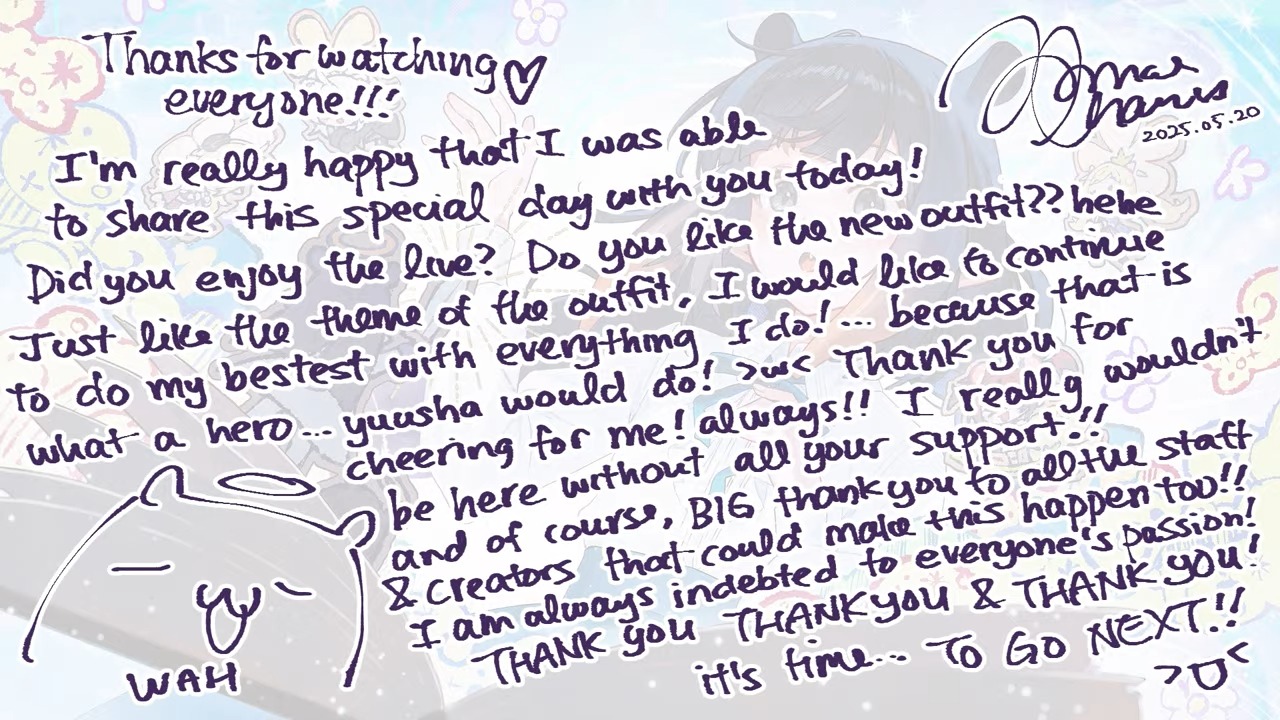 Thanks for watching♡
everyone!!!
2025.05.20
I'm really happy that I was able
to share this special day with you today!
Did you enjoy the live? Do you like the new outfit?? hehe
Just like the theme of the outfit, I would like to continue
to do my bestest with everything I do!... because that is
what a hero... yuusha would do! >w< Thank you for
cheering for me! always!! I really wouldn't
be here without all your support!!
and of course, BIG thank you to all the staff
& creators that could make this happen too!!
I am always indebted to everyone's passion!
THANK you THANK you & THANK you!
it's time... TO GO NEXT!!
>▽<
WAH